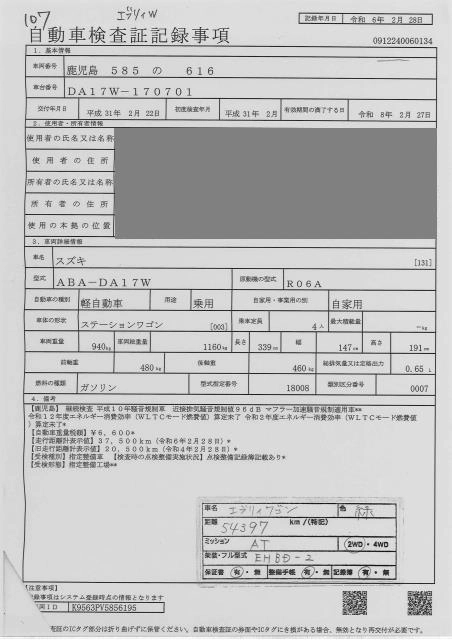 107 エブリィW
記録年月日 令和 6年 2月 28日
自動車検査証記録事項
0912240060134
1．基本情報
車両番号 鹿児島 585 の 616
車台番号 DA17W-170701
交付年月日 平成 31年 2月 22日 初度検査年月 平成 31年 2月 有効期間の満了する日 令和 8年 2月 27日
2．使用者・所有者情報
使用者の氏名又は名称
使用者の住所
所有者の氏名又は名称
所有者の住所
使用の本拠の位置
3．車両詳細情報
車名 スズキ [131]
型式 ABA-DA17W 原動機の型式 R06A
自動車の種別 軽自動車 用途 乗用 自家用・事業用の別 自家用
車体の形状 ステーションワゴン [003] 乗車定員 4人 最大積載量 -kg
車両重量 940kg 車両総重量 1160kg 長さ 339cm 幅 147cm 高さ 191cm
前軸重 480kg 後軸重 460kg 総排気量又は定格出力 0.65 L
燃料の種類 ガソリン 型式指定番号 18008 類別区分番号 0007
4．備考
【鹿児島】 継続検査 平成10年騒音規制車 近接排気騒音規制値96dB マフラー加速騒音規制適用車**
令和12年度エネルギー消費効率（WLTCモード燃費値）算定未了 令和2年度エネルギー消費効率（WLTCモード燃費値
）算定未了*
【自動車重量税額】￥6,600*
【走行距離計表示値】37,500km（令和6年2月28日）*
【旧走行距離計表示値】20,500km（令和4年2月28日）*
【受検種別】指定整備車 【検査時の点検整備実施状況】点検整備記録簿記載あり*
【受検形態】指定整備工場**
車名 エブリィワゴン 色 緑
距離 54397 km/(特記)
ミッション AT 2WD・4WD
架装・フル型式 EHBD-2
保証書 有・無 整備手帳 有・無 記録簿 有・無
【注意事項】
記録事項はシステム登録時点の情報となります
両ID K9563PV5856195
査証のICタグ部分は折り曲げずに保管ください。自動車検査証の券面やICタグにき損がある場合、無効となり再交付が必要です。